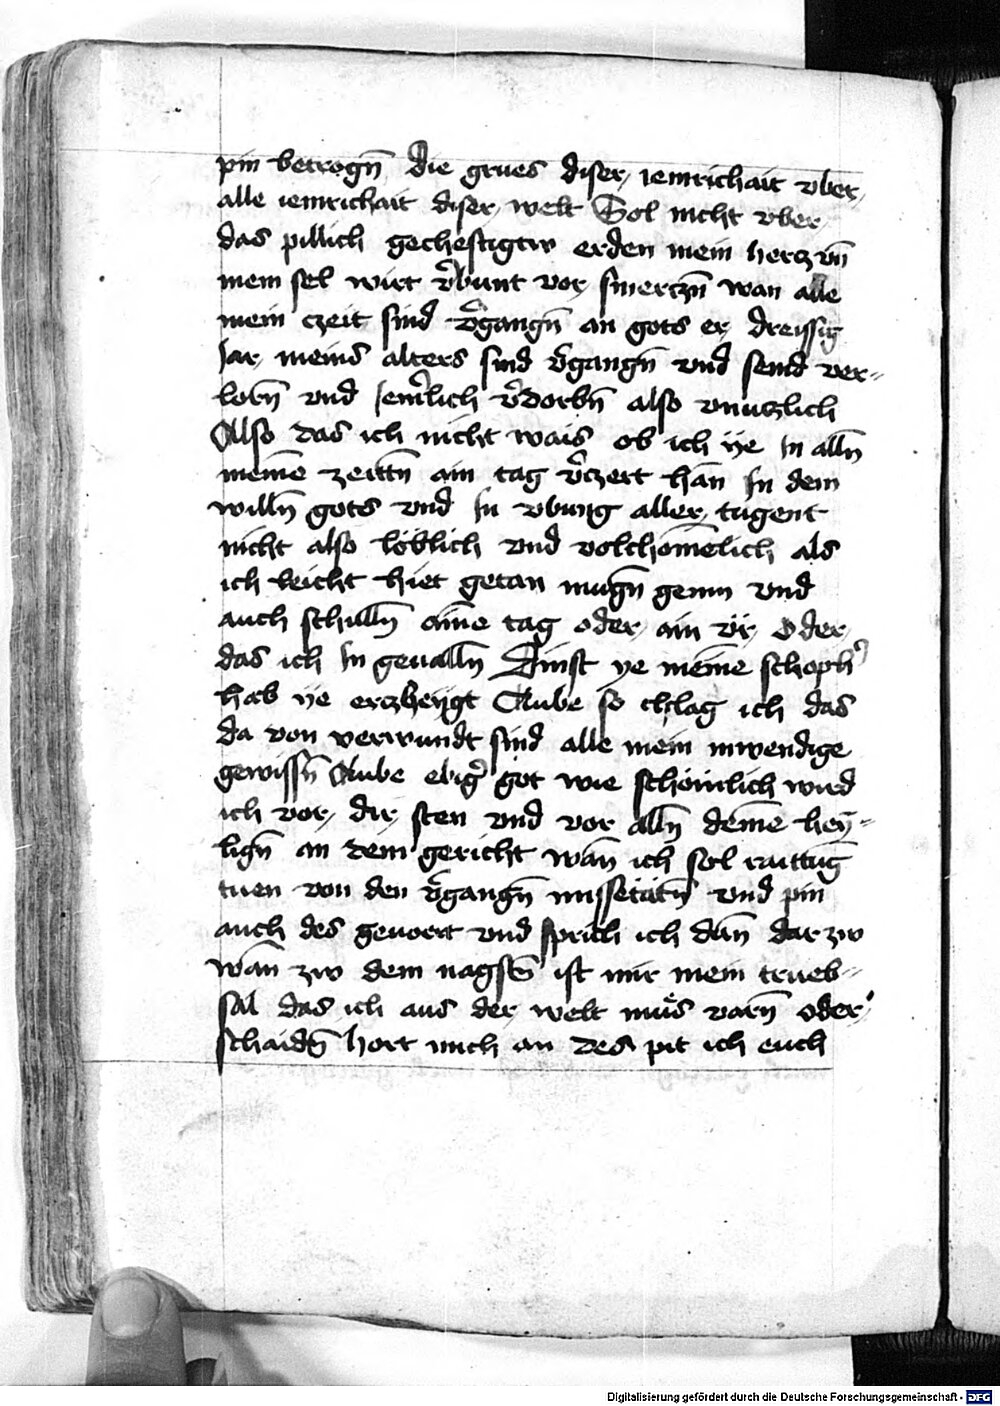 pin betrogñ die grues diser iemrichait vber
alle iemrichait diser welt Sol nicht vber
das pillich gechestigtw erden mein hercz vñ
mein sel wirt v̄bunt vor smerczñ wan alle
mein czeit sind v̄gangñ an gots er dreissig
Jar meins alters sind v̄gangñ vnd send ver-
lorñ vnd Jem̄lich v̄dorbñ also vnuczlich
Also das ich nicht wais ob ich ÿe in alln̄
meinē zeittñ ain tag v̄czert hān In dem
willn̄ gots vnd In vbung aller tugent
nicht also löblich vnd volchomēlich als
ich leicht hiet getan mugñ genun vnd
auch schulln̄ ainē tag oder ain vr̈ Oder
das ich In geualln̄ Dinst ye meinē schoph̄
hab ÿe erczheÿgt Aube so chlag ich das
da von verwundt sind alle mein inwendige
gewissñ Aube ebiḡ got wie schömlich wird
ich vor dir sten vnd vor alln̄ deinē heÿ-
ligñ an dem gericht wān ich sol raittūg
tuen von den v̄gangñ missetätñ vnd pin
auch des geuoert vnd sprich ich dān dar zw
wān zw dem nagstñ ist mir mein trueb-
sal das ich aus der welt mu̇s varñ oder
schaidñ hort mich an des pit ich euch
Digitalisierung gefördert durch die Deutsche Forschungsgemeinschaft - DFG